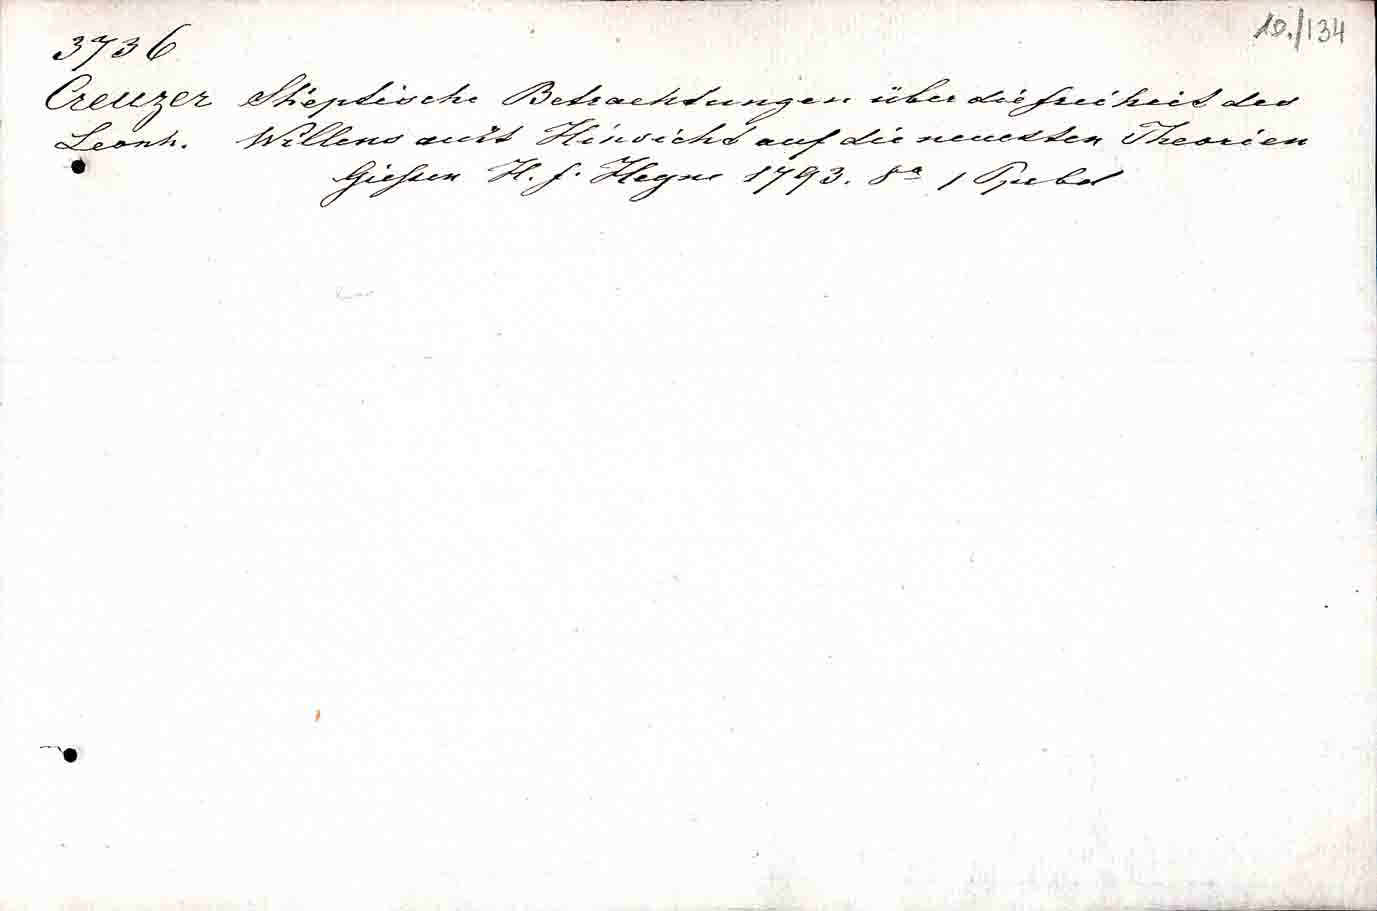 10./134
3736
Creuzer Skeptische Betrachtungen über die freiheit des
Leonh. Willens mit Hinsicht auf die neuesten Theorien
Giessen H. f. Heyer 1793. 8°